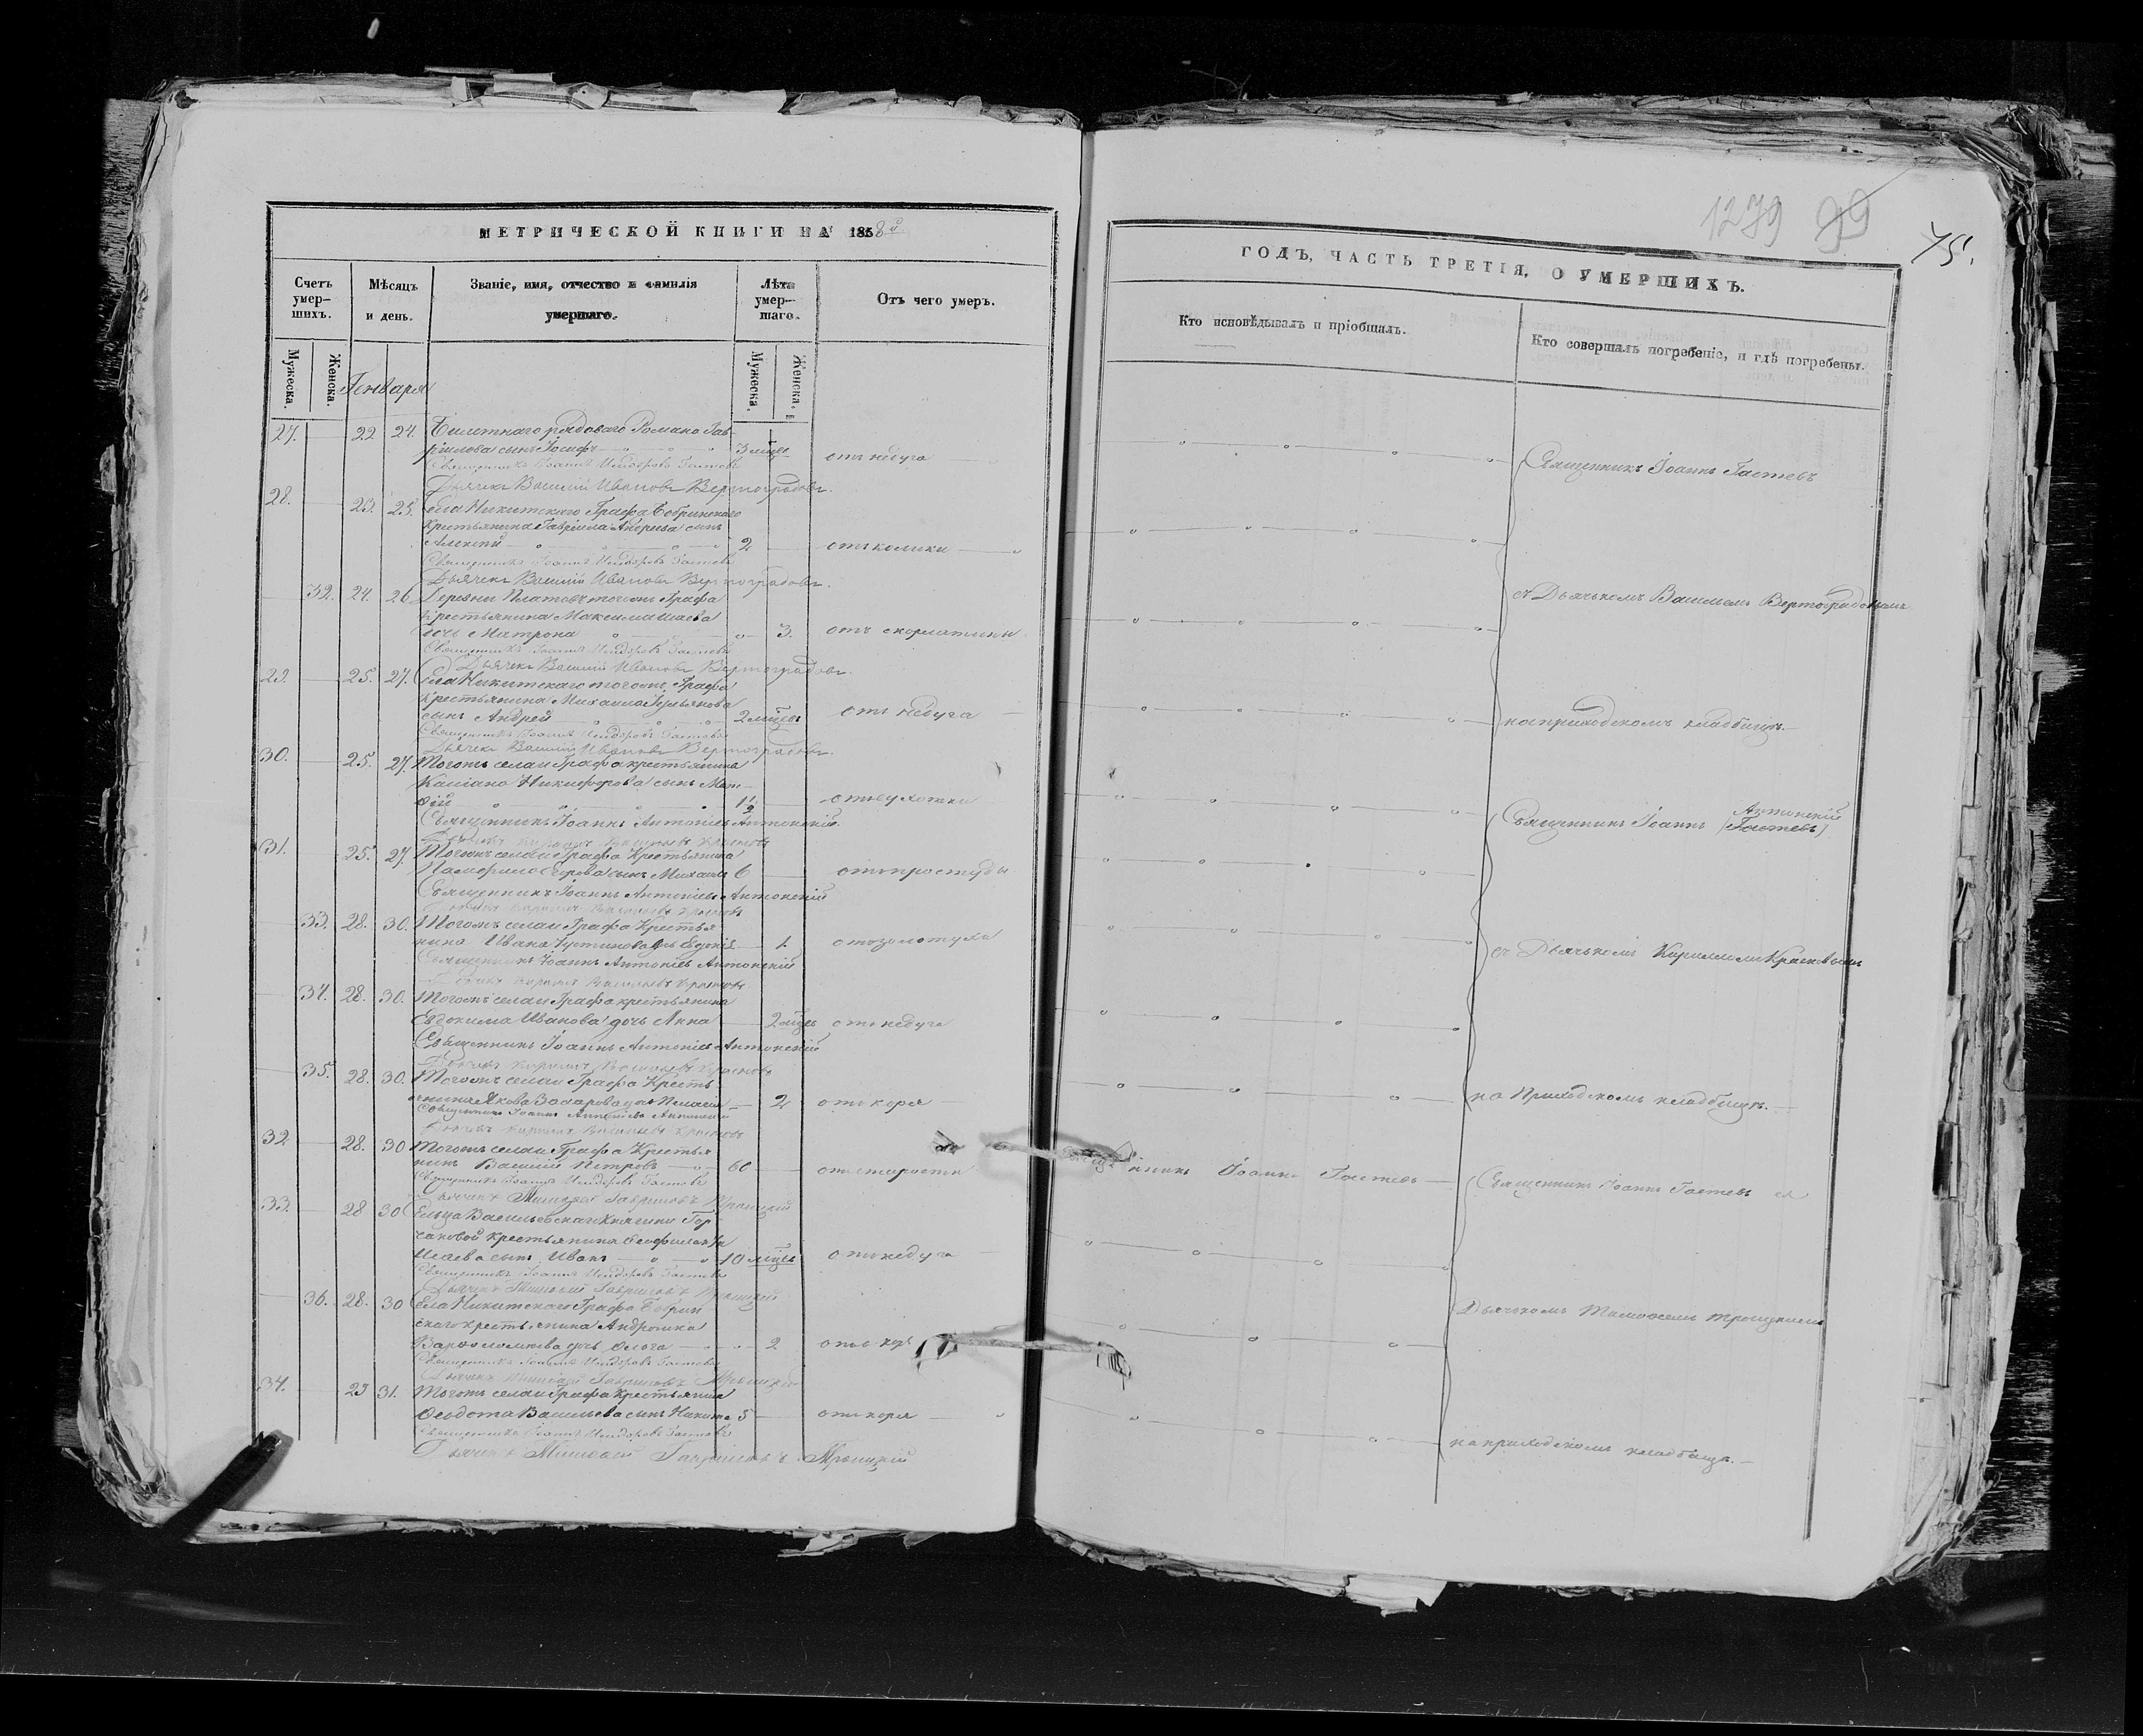 МЕТРИЧЕСКОЙ КНИГИ НА 1858й
Счетъ умер-шихъ.
Мѣсяцъ и день.
Званіе, имя, отчество и фамилія умершаго.
Лѣта умер-шаго.
Отъ чего умеръ.
Мужеска.
Женска.
Мужеска.
Женска.
Генваря
27. 22. 24. Билетнаго рядоваго Романа Гав-
ріилова сынъ Іосифъ 3 мцы отъ недуга
Священникъ Іоаннъ Исидоровъ Гастевъ
Дьячекъ Василій Ивановъ Вертоградовъ.
28. 23. 25. Села Никитскаго Графа Бобринскаго
крестьянина Гавріила Андреева сынъ
Алексій 2 отъ колики
Священникъ Іоаннъ Исидоровъ Гастевъ
Дьячекъ Василій Ивановъ Вертоградовъ.
32. 24. 26 Деревни тогожъ Графа
крестьянина Максима Исаева
дочь Матрона 3. отъ скорлатины
Священникъ Іоаннъ Исидоровъ Гастевъ
Дьячекъ Василій Ивановъ Вертоградовъ.
29. 25. 27. Села Никитскаго тогожъ Графа
крестьянина Михаила
сынъ Андрей 2 мцевъ отъ недуга
Священникъ Іоаннъ Исидоровъ Гастевъ
Дьячекъ Василій Ивановъ Вертоградовъ.
30. 25. 27. Тогожъ села и Графа крестьянина
Касіана Никифорова сынъ Мат-
ѳій 1 1/2 отъ сухотки
Священникъ Іоаннъ Антоніевъ Антонскій
Дьячекъ Кириллъ Васильевъ Красновъ
31. 25. 27. Тогожъ села и Графа Крестьянина
Памфила Егорова сынъ Михаилъ 6 отъ простуды
Священникъ Іоаннъ Антоніевъ Антонскій
Дьячекъ Кириллъ Васильевъ Красновъ
33. 28. 30. Тогожъ села и Графа Крестья
нина Ивана Іустинова дочь Евдокія 1. отъ золотухи
Священникъ Іоаннъ Антоніевъ Антонскій
Дьячекъ Кириллъ Васильевъ Красновъ
34. 28. 30. Тогожъ села и Графа крестьянина
Евдокима Иванова дочь Анна 2 мцевъ отъ недуга
Священникъ Іоаннъ Антоніевъ Антонскій
Дьячекъ Кириллъ Васильевъ Красновъ
35. 28. 30. Тогожъ села и Графа Кресть
янина Якова Захарова дочь Пелагія 2 отъ кори
Священникъ Іоаннъ Антоніевъ Антонскій
Дьячекъ Кириллъ Васильевъ Красновъ
32. 28. 30 Тогожъ села и Графа Крестья
нинъ Василій Петровъ 60 отъ старости
Священникъ Іоаннъ Исидоровъ Гастевъ
Дьячекъ Гавриловъ Троицкій
33. 28 30 Сельца Васильевскаго Княгини Гор
чаковой крестьянина Ѳеофилакта
Исаева сынъ Иванъ 10 мцевъ отъ недуга
Священникъ Іоаннъ Исидоровъ Гастевъ
Дьячекъ Гавриловъ Троицкій
36. 28. 30 Села Никитскаго Графа Бобрин
скаго крестьянина Андроника
Варѳоломеева дочь Ольга 2 отъ кори
Священникъ Іоаннъ Исидоровъ Гастевъ
Дьячекъ Гавриловъ Троицкій
34. 29 31. Тогожъ села и Графа Крестьянина
Ѳеодота Васильева сынъ Никита 5 отъ кори
Священникъ Іоаннъ Исидоровъ Гастевъ
Дьячекъ Гавриловъ Троицкій
1279 99
75.
ГОДЪ, ЧАСТЬ ТРЕТІЯ, О УМЕРШИХЪ.
Кто исповѣдывалъ и пріобщалъ.
Кто совершалъ погребеніе, и гдѣ погребены.
Священникъ Іоаннъ Гастевъ
съ Дьячькомъ Василіемъ Вертоградовымъ
на приходскомъ кладбищѣ.
Антонскій
Священникъ Іоаннъ (Гастевъ)
съ Дьячькомъ Кирилломъ Красновымъ
на Приходскомъ кладбищѣ.
Священникъ Іоаннъ Гастевъ
Священникъ Іоаннъ Гастевъ съ
Дьячькомъ Троицкимъ
на приходскомъ кладбищѣ.